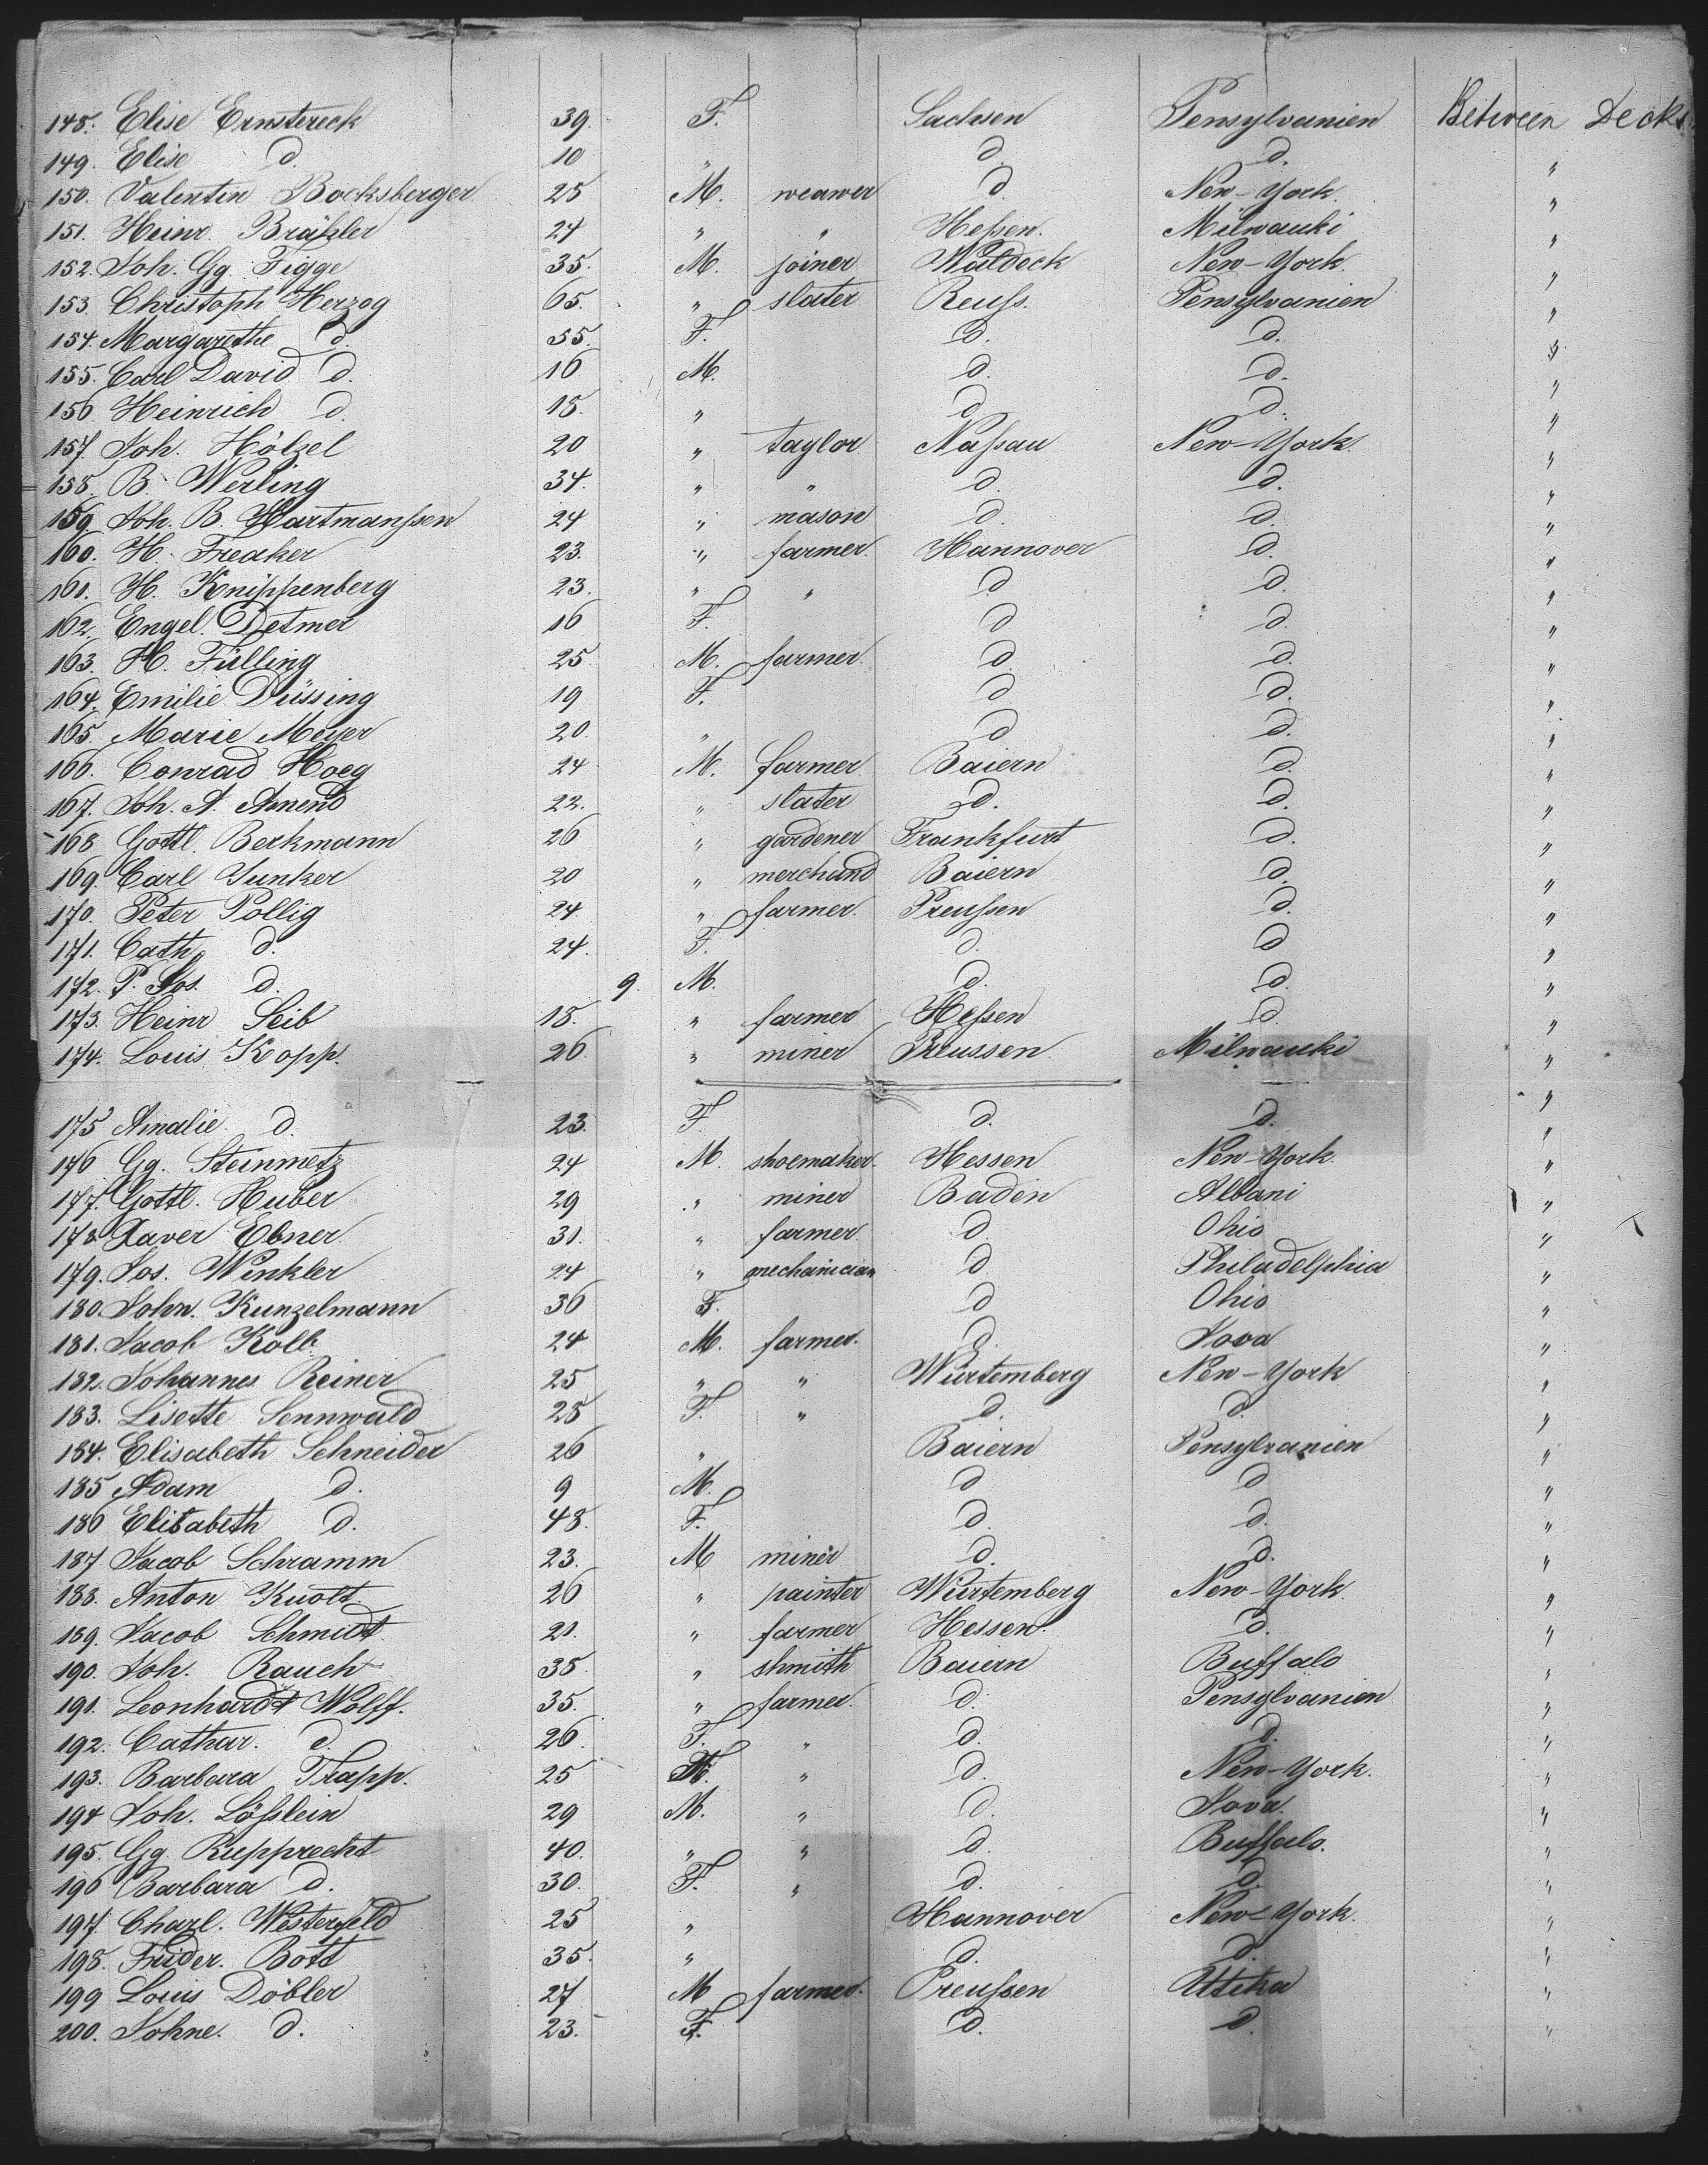 148. Elise Ernstereck 39. F. Sachsen Pensylvanien Between Decks
149. Elise d. 10 " d. d. "
150. Valentin Bocksberger 25 M. weawer d. New-York. "
151. Heinr. Bräßler 24 " " Heßen. Milwauki "
152. Joh. Gg. Figge 35. M. joiner Waldeck New-York. "
153. Christoph Herzog 65. " slater Reuß. Pensylvanien "
154. Margarethe d. 55. F. d. d. "
155. Carl David d. 16 M. d. d. "
156 Heinrich d. 15. " d. d. "
157. Joh. Hölzel 20 " taylor Naßau New-York. "
158. B. Werling 34. " " d. d. "
159. Joh. B. Hartmanßen 24 " mason d. d. "
160. H. Freaker 23. " farmer. Hannover d. "
161. H. Knippenberg 23. " " d d. "
162. Engel. Detmer 16 F. d d. "
163. H. Fülling 25. M. farmer. d. d. "
164. Emilie Düssing 19 F. d d. "
165. Marie Meyer 20. " d d. "
166. Conrad Hoeg 24 M. farmer Baiern d. "
167. Joh. A. Amend 22. " slater d. d. "
168 Gottl. Berkmann 26 " gardener Frankfurt d. "
169. Carl Junker 20 " merchand Baiern d. "
170. Peter Pollig 24. " farmer. Preußen d. "
171. Cath. d. 24. F. d. d "
172. P. Jos. d. 9. M. d. d. "
173. Heinr Seib 18. " farmer Heßen d. "
174. Louis Kopp. 26 " miner Preussen Milwauki "
175 Amalie d. 23. F. d. d. "
176 Gg. Steinmetz 24 M. shoemaker. Hessen New-York. "
177. Gottl. Huber 29 " miner Baden Albani "
178. Xaver Ebner 31. " farmer d. Ohio "
179. Jos. Winkler 24 " mechanician d Philadelphia "
180. John. Kunzelmann 36 F. d Ohio "
181. Jacob Kolb. 24 M. farmer. d. Jova "
182. Johannes Reiner 25 " " Würtemberg New-York "
183. Lisette Sennwald 28 F. " d. d. "
184. Elisabeth Schneider 26 " Baiern Pensylvanien "
185 Adam d. 9 M. d d "
186 Elisabeth d. 48. F. d. d. "
187 Jacob Schramm 23. M miner d. d. "
188. Anton Kuolt. 26 " painter Würtemberg New-York. "
189. Jacob Schmidt 21. " farmer Hessen. d. "
190. Joh. Rauch 35. " shmith Baiern Buffalo "
191. Leonhardt Wolff. 35. " farmer. d. Pensylvanien "
192. Cathar. d. 26. F. " d. d. "
193. Barbara Trapp. 25 F. " d. New-York. "
194 Joh. Lößlein 29 M. " d. Jova. "
195. Gg. Rupprecht 40. " " d. Buffalo. "
196 Barbara d. 30. F. " d. d. "
197. Charl. Westerfeld 25 " Hannover New-York. "
198. Frider. Bott 35. " d. d. "
199 Louis Döbler 27 M farmer. Preußen Uticha "
200. Johne. d. 23. F. d. d. "